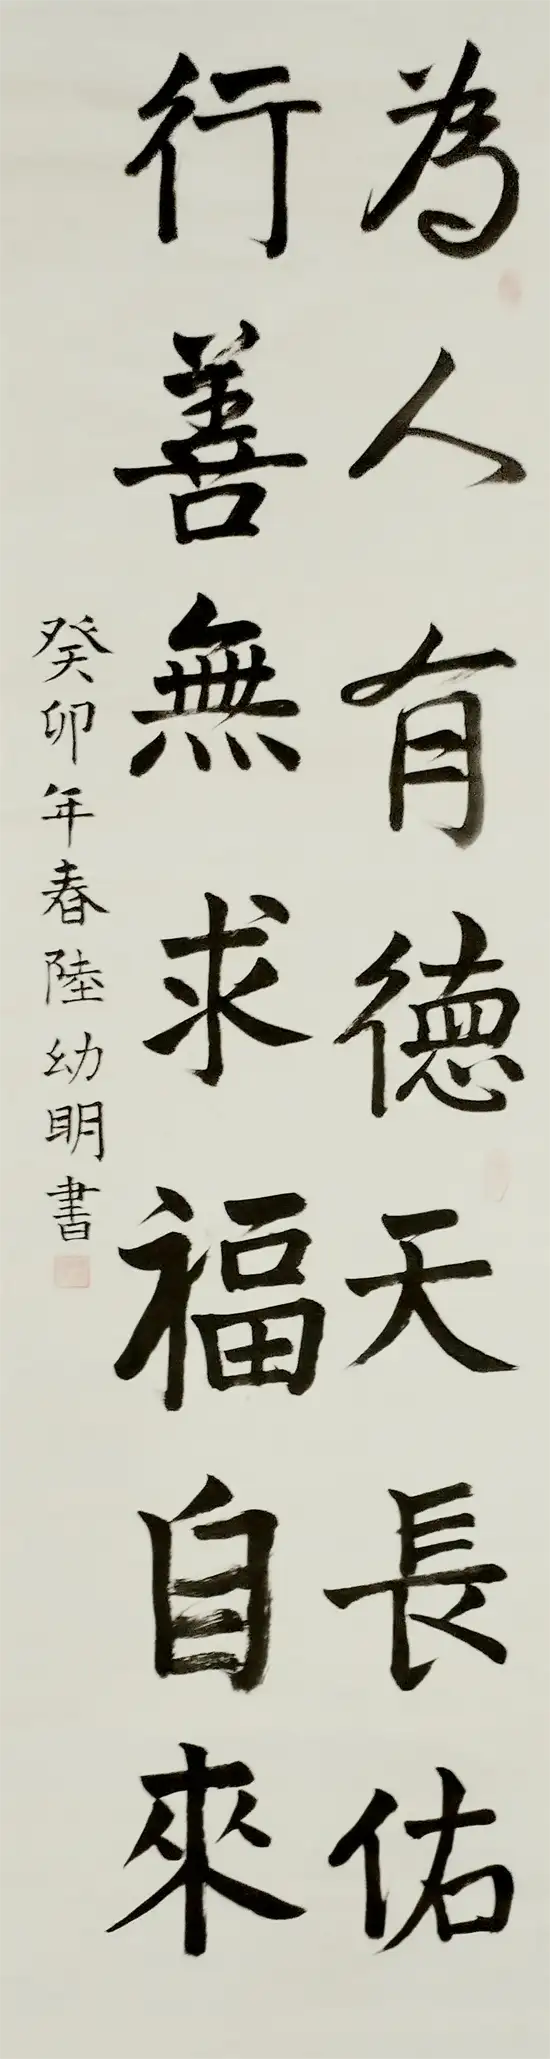 為人有德天長佑
行善無求福自來
癸卯年春陸幼明書